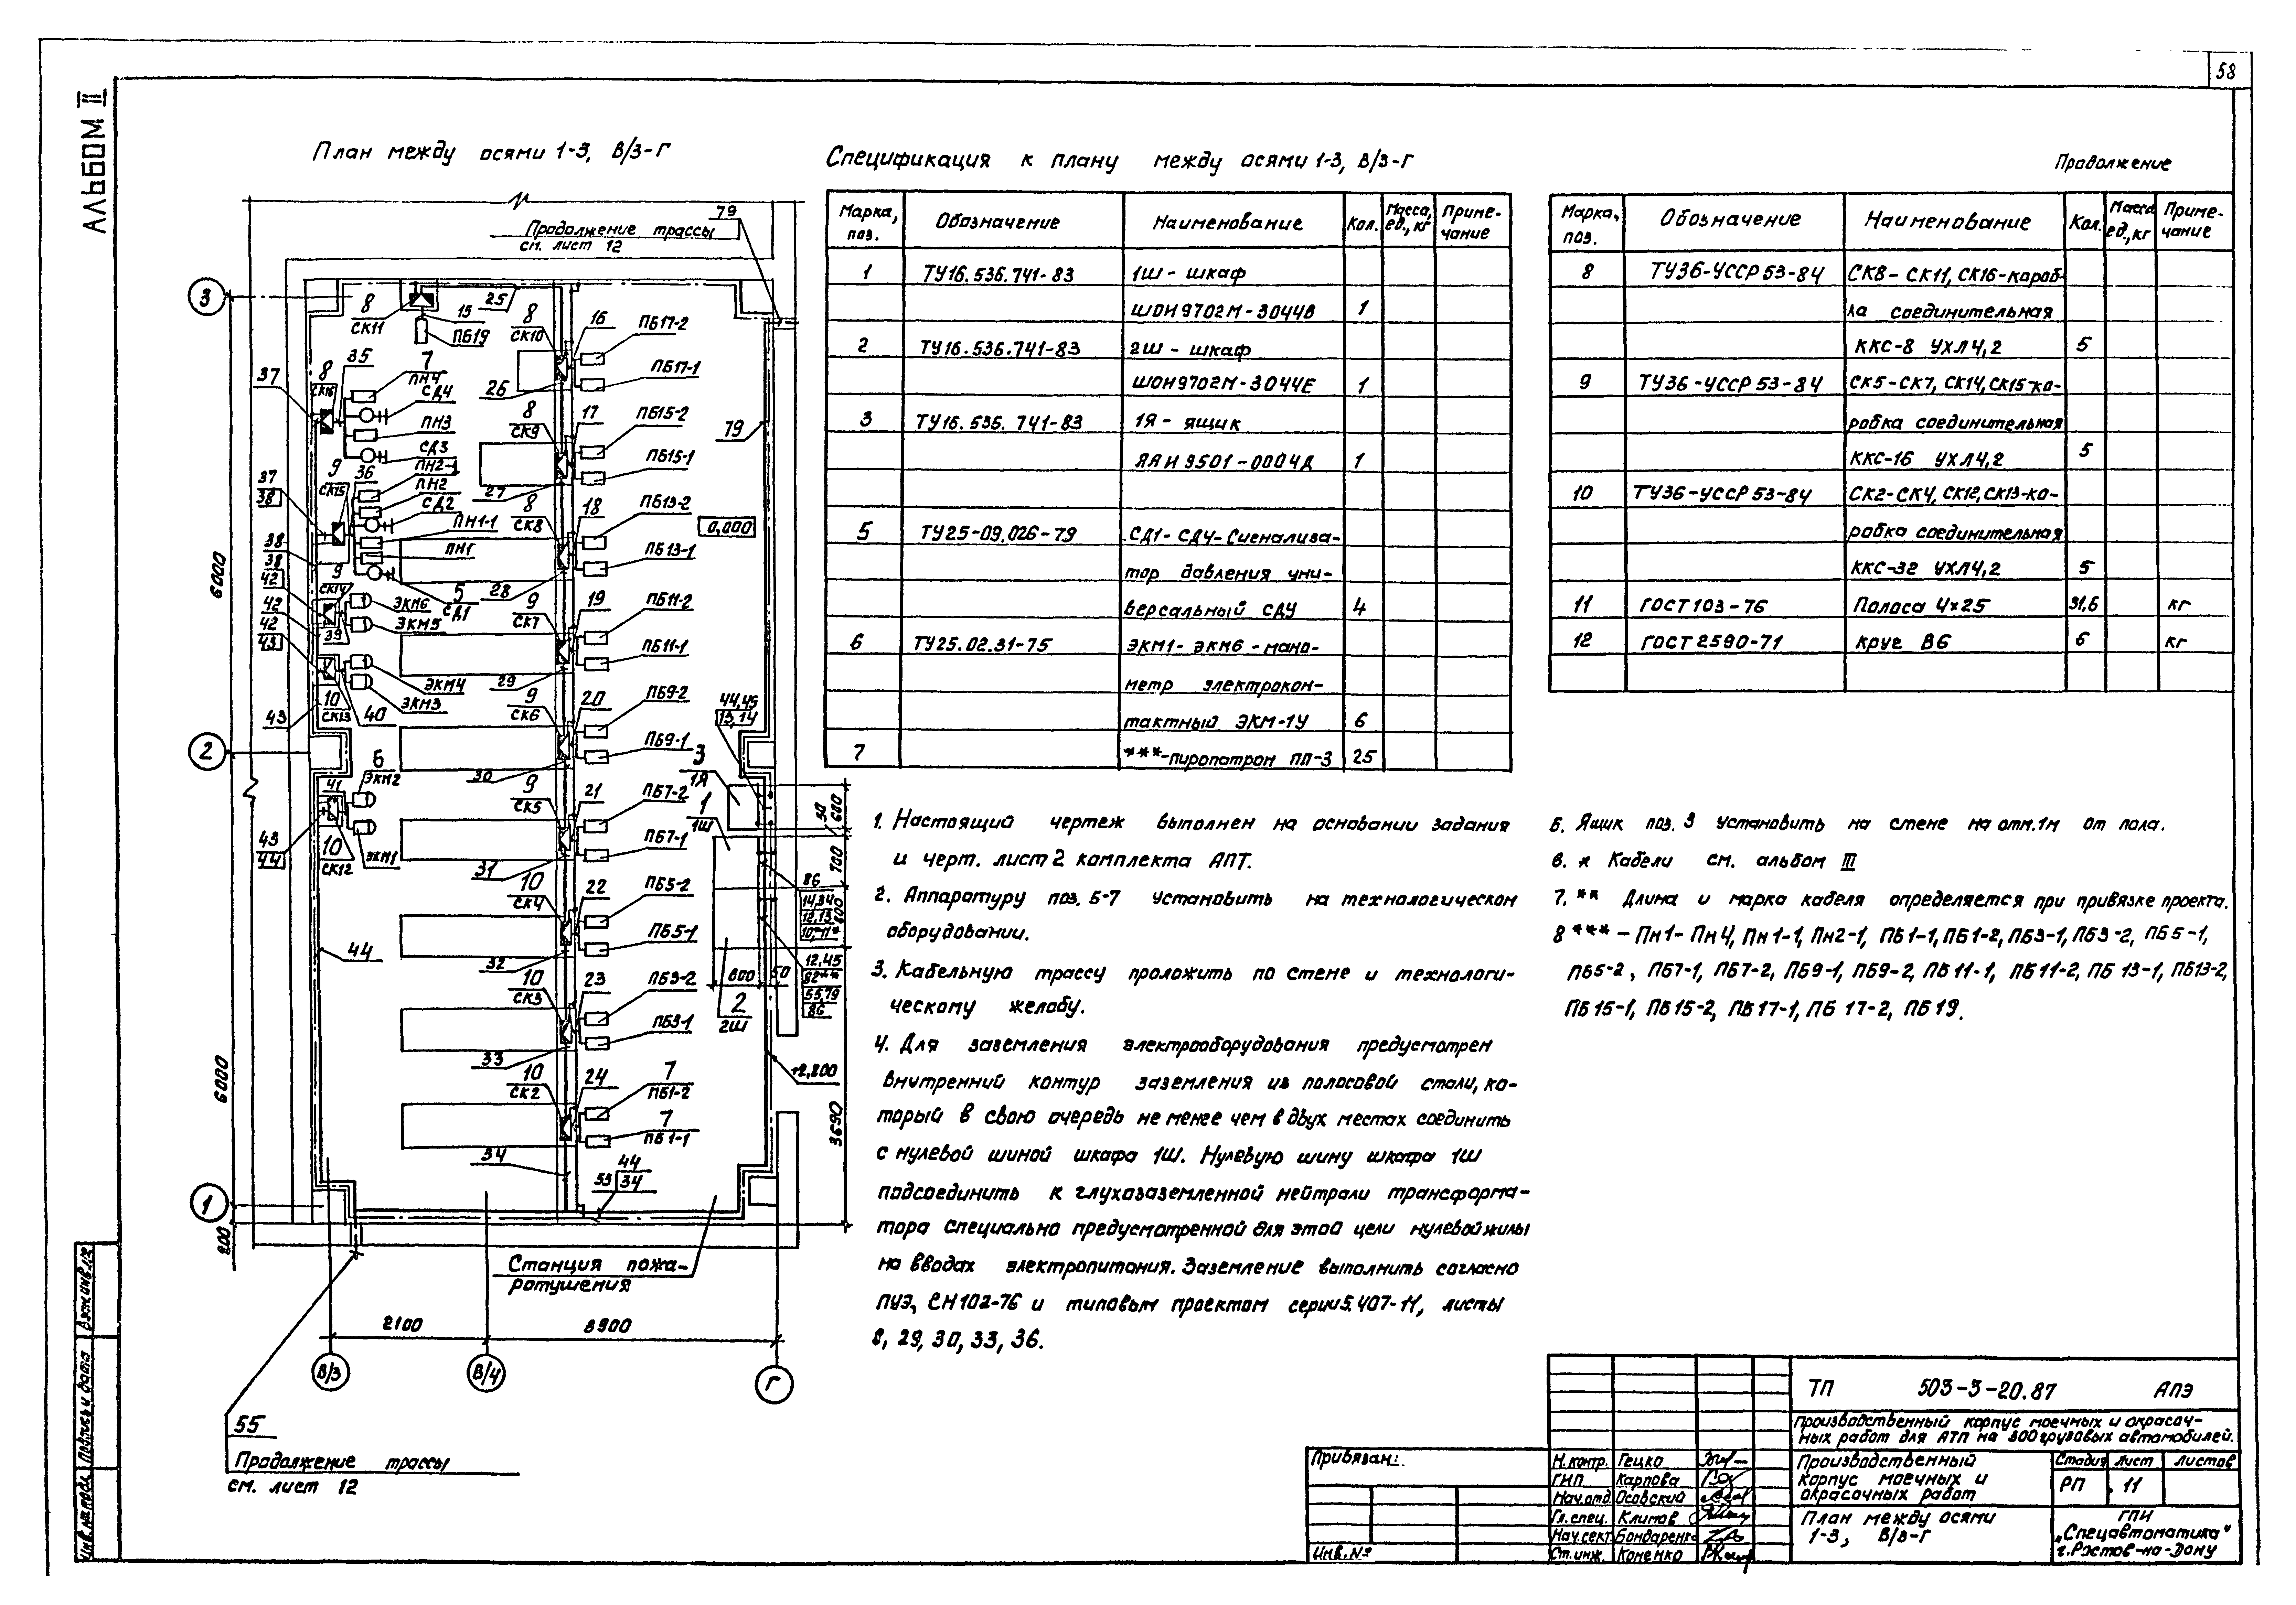 58
АЛЬБОМ II
План между осями 1-3, В/3-Г
Продолжение трассы
см. лист 12
79
3
8
СК11
25
15
ПБ19
8
СК10
16
ПБ17-2
ПБ17-1
26
37
8
СК16
35
7
ПН4
СД4
ПН3
СД3
8
СК9
17
ПБ15-2
ПБ15-1
27
79
37
38
9
СК15
36
ПН2-1
ПН2
СД2
ПН1-1
ПН1
5
СД1
8
СК8
18
ПБ13-2
ПБ13-1
28
0,000
38
38
42
42
42
43
9
СК14
39
ЭКМ6
ЭКМ5
9
СК7
19
ПБ11-2
ПБ11-1
29
6000
43
10
СК13
40
ЭКМ4
ЭКМ3
9
СК6
20
ПБ9-2
ПБ9-1
30
44,45
13,14
2
41
6
ЭКМ2
ЭКМ1
43
44
10
СК12
9
СК5
21
ПБ7-2
ПБ7-1
31
3
1Я
1
1Ш
50
600
700
600
44
10
СК4
22
ПБ5-2
ПБ5-1
32
86
14,34
12,13
10*,11*
12,45
82**
55,79
86
800
50
2
2Ш
10
СК3
23
ПБ3-2
ПБ3-1
33
+2,800
6000
10
СК2
24
7
ПБ1-2
7
ПБ1-1
34
3690
55
44
34
1
200
Станция пожа-
ротушения
2100
8900
В/3
В/4
Г
55
Продолжение трассы
см. лист 12
Спецификация к плану между осями 1-3, В/3-Г
Марка, поз. Обозначение Наименование Кол. Масса, ед., кг Приме-чание
1 ТУ16.536.741-83 1Ш - шкаф
ШОИ 9702М-3044В 1
2 ТУ16.536.741-83 2Ш - шкаф
ШОН9702М-3044Е 1
3 ТУ16.536.741-83 1Я - ящик
ЯАИ 9501-0004Д 1
5 ТУ25-09.026-79 СД1-СД4-Сигнализа-
тор давления уни-
версальный СДУ 4
6 ТУ25.02.31-75 ЭКМ1-ЭКМ6-мано-
метр электрокон-
тактный ЭКМ-1У 6
7 ***-пиропатрон ПП-3 25
Продолжение
Марка, поз. Обозначение Наименование Кол. Масса ед., кг Приме-чание
8 ТУ36-УССР 53-84 СК8-СК11, СК16-короб-
ка соединительная
ККС-8 УХЛ4,2 5
9 ТУ36-УССР 53-84 СК5-СК7, СК14, СК15-ко-
робка соединительная
ККС-16 УХЛ4,2 5
10 ТУ36-УССР 53-84 СК2-СК4, СК12, СК13-ко-
робка соединительная
ККС-32 УХЛ4,2 5
11 ГОСТ 103-76 Полоса 4×25 31,6 кг
12 ГОСТ 2590-71 Круг В6 6 кг
1. Настоящий чертеж выполнен на основании задания
и черт. лист 2 комплекта АПТ.
2. Аппаратуру поз. 5-7 установить на технологическом
оборудовании.
3. Кабельную трассу проложить по стене и технологи-
ческому желобу.
4. Для заземления электрооборудования предусмотрен
внутренний контур заземления из полосовой стали, ко-
торый в свою очередь не менее чем в двух местах соединить
с нулевой шиной шкафа 1Ш. Нулевую шину шкафа 1Ш
подсоединить к глухозаземленной нейтрали трансформа-
тора специально предусмотренной для этой цели нулевой жилы
на вводах электропитания. Заземление выполнить согласно
ПУЭ, СН 102-76 и типовым проектом серии 5.407-11, листы
8, 29, 30, 33, 36.
5. Ящик поз. 3 установить на стене на отм. 1м от пола.
6. * Кабели см. альбом III
7. ** Длина и марка кабеля определяется при привязке проекта.
8 *** - Пн1-Пн4, Пн1-1, Пн2-1, ПБ1-1, ПБ1-2, ПБ3-1, ПБ3-2, ПБ5-1,
ПБ5-2, ПБ7-1, ПБ7-2, ПБ9-1, ПБ9-2, ПБ11-1, ПБ11-2, ПБ13-1, ПБ13-2,
ПБ15-1, ПБ15-2, ПБ17-1, ПБ17-2, ПБ19.
Привязан:
Инв. №
Н.контр. Гецко
ГИП Карпова
Нач.отд. Осовский
Гл.спец. Климов
Нач.сект. Бондаренко
Ст.инж. Коненко
ТП 503-3-20.87 АПЭ
Производственный корпус моечных и окрасоч-
ных работ для АТП на 300 грузовых автомобилей.
Производственный
корпус моечных и
окрасочных работ
Стадия Лист Листов
РП 11
План между осями
1-3, В/3-Г
ГПИ
„Спецавтоматика"
г. Ростов-на-Дону
Взам.инв.№
Подпись и дата
Инв.№ подл.